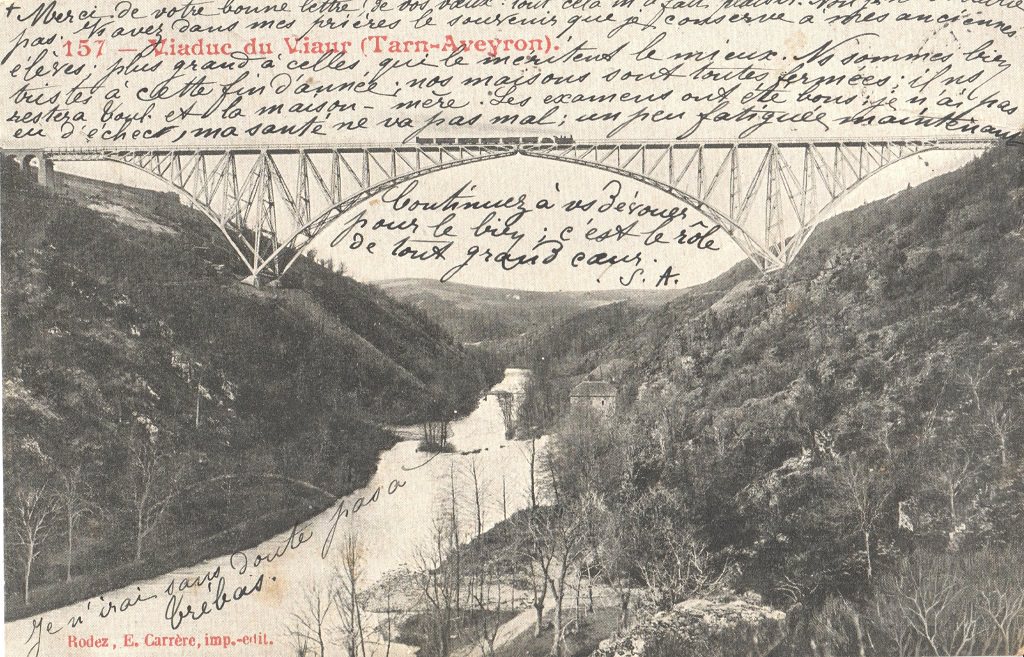 + Merci de votre bonne lettre, de vos vœux. tout cela m'a fait plaisir. Non
pas. Vs avez dans mes prières le souvenir que je conserve à mes anciennes
157 — Viaduc du Viaur (Tarn-Aveyron).
élèves; plus grand à celles qui le méritent le mieux. Ns sommes bien
tristes à cette fin d'année; nos maisons sont toutes fermées; il ns
restera Vabre et la maison-mère. Les examens ont été bons; je n'ai pas
eu d'échec; ma santé ne va pas mal; un peu fatiguée maintenant
Continuez à vs dévouer
pour le bien; c'est le rôle
de tout grand cœur.
S. A.
Je n'irai sans doute pas à
Trébas.
Rodez, E. Carrère, imp.-edit.